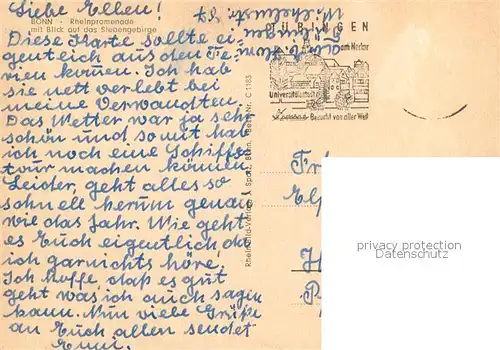 Liebe Ellen!
BONN - Rheinpromenade
mit Blick auf das Siebengebirge
Diese Karte sollte ei-
gentlich aus den Fe-
rien kommen. Ich hab
sie nett verlebt bei
meine Verwandten.
Das Wetter war ja sehr
schön und somit hab
ich noch eine Schiffs-
tour machen können.
Leider, geht alles so
schnell herum genau
wie das Jahr. Wie geht
es Euch eigentlich da
ich garnichts höre,
Ich hoffe, daß es gut
geht was ich auch sagen
kann. Nun viele Grüße
an Euch allen sendet
Emi.
TÜBINGEN
am Neckar
Universitätsstadt
Besucht von aller Welt
Rheinbild-Verlag
Bonn
Nr. C 1183
privacy protection
Datenschutz